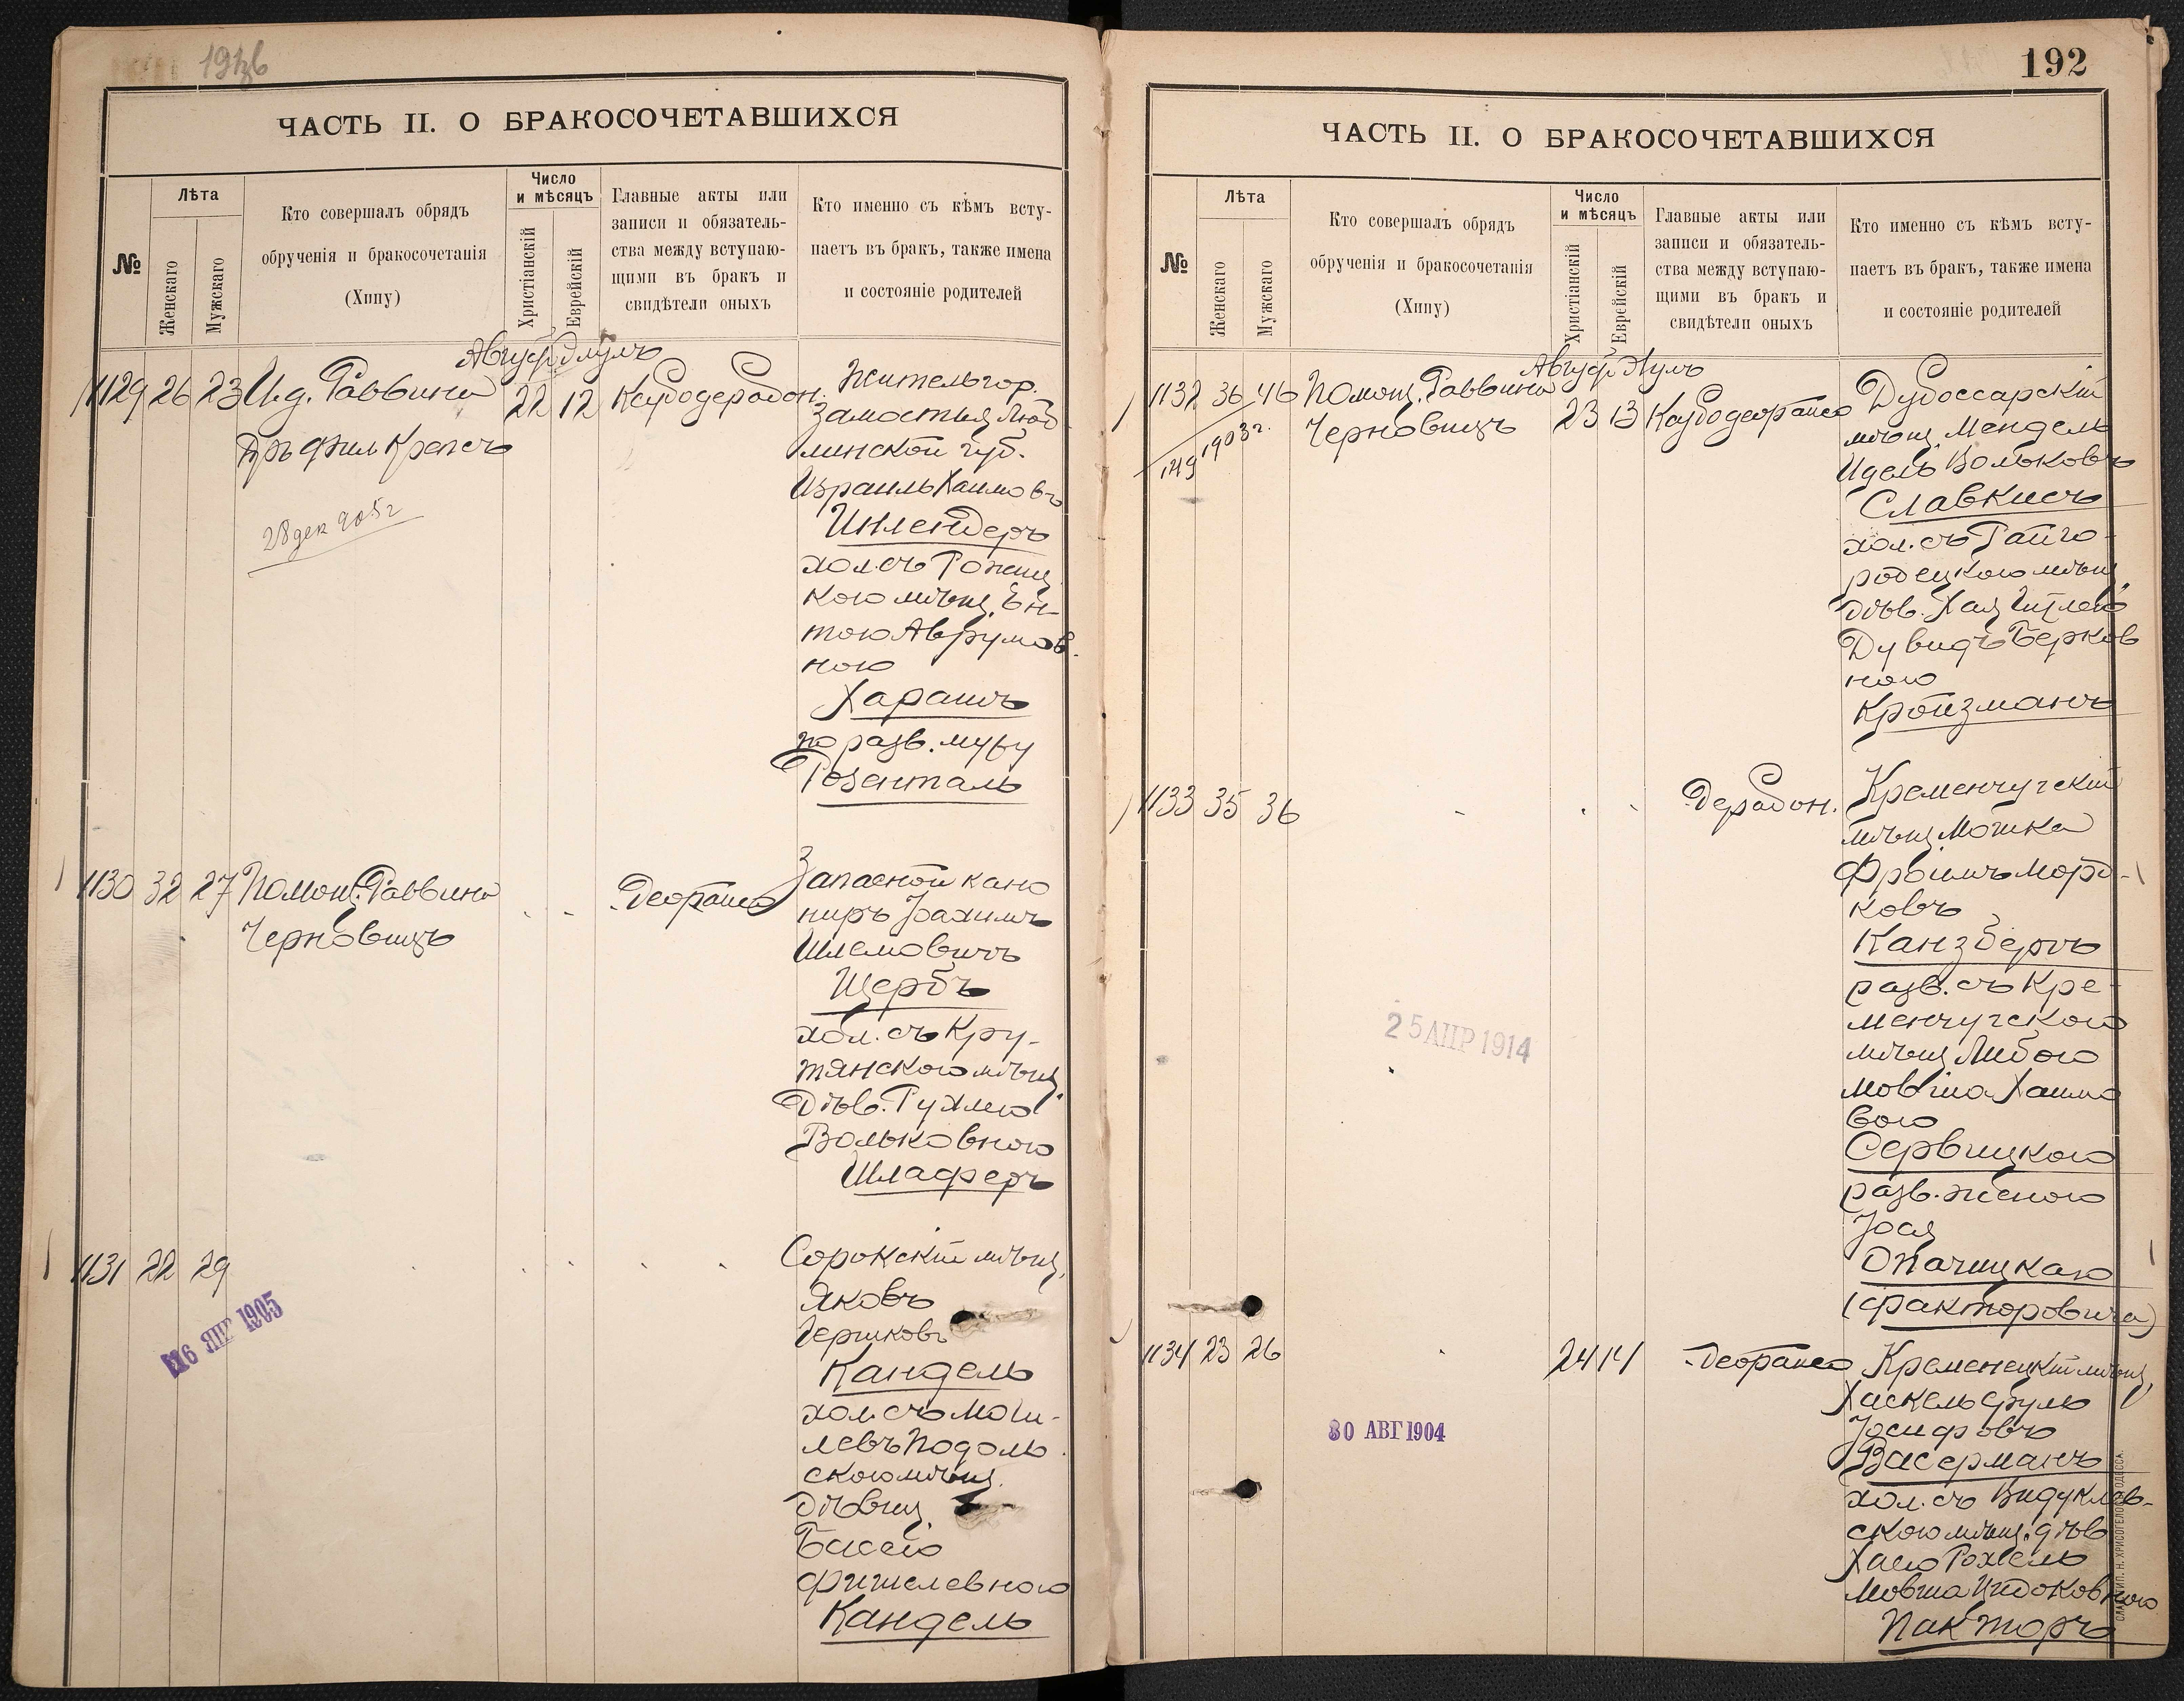 ЧАСТЬ II. О БРАКОСОЧЕТАВШИХСЯ
№
Лѣта
Женскаго
Мужскаго
Кто совершалъ обрядъ
обрученія и бракосочетанія
(Хипу)
Число
и мѣсяцъ
Христіанскій
Еврейскій
Главные акты или
записи и обязатель-
ства между вступаю-
щими въ бракъ и
свидѣтели оныхъ
Кто именно съ кѣмъ всту-
паетъ въ бракъ, также имена
и состояніе родителей
1129 26 23 И.д. Раввина
Крепсъ
28 дек 905 г
22 12
Житель гор.
Замостья Люб
линской губ.
Израиль Хаимовъ
Инлендеръ
хол. съ
кою мѣщ. Ен-
тою Аврумов-
ною
Харашъ
по разв. мужу
Розенталь
1130 32 27 Помощ. Раввина
Черновицъ
Запасной кано
ниръ Іоахимъ
Шлемовичъ
Щербъ
хол. съ Кру-
тянскою мѣщ.
Дѣв. Рухлею
Вольковною
Шлаферъ
1131 22 29
16 ЯНР 1905
Сорокскій мѣщ.
Яковъ
Гершковъ
Кандель
хол. съ Моги-
левъ Подоль
скою мѣщ.
Дѣвиц.
Басею
Фишелевною
Кандель
192
ЧАСТЬ II. О БРАКОСОЧЕТАВШИХСЯ
№
Лѣта
Женскаго
Мужскаго
Кто совершалъ обрядъ
обрученія и бракосочетанія
(Хипу)
Число
и мѣсяцъ
Христіанскій
Еврейскій
Главные акты или
записи и обязатель-
ства между вступаю-
щими въ бракъ и
свидѣтели оныхъ
Кто именно съ кѣмъ всту-
паетъ въ бракъ, также имена
и состояніе родителей
1132 36 46 Помощ. Раввина
Черновицъ
149 1903 г.
23 13
Дубоссарскій
мѣщ. Мендель
Идель Вольковъ
Славкисъ
хол. съ Райго-
родецкою мѣщ.
дѣв. Хая Гитлею
Дувидъ Берков
ною
Кройзманъ
1133 35 36
25 АПР 1914
Кременчугскій
мѣщ. Мошка
Фроимъ Морд-
ковъ
Канзбергъ
разв. съ Кре-
менчугскою
мѣщ. Либою
Мовша Хаимо
вою
Сервицкою
разв. женою
Опачицкаго
(Факторовича)
1134 23 26
24 14
30 АВГ 1904
Кременецкій мѣщ.
Хаскель Сруль
Іосифовъ
Васерманъ
хол. съ Видуклев-
скою мѣщ. дѣв
Хаею Рохель
Мовша Ицковною
Пакторъ